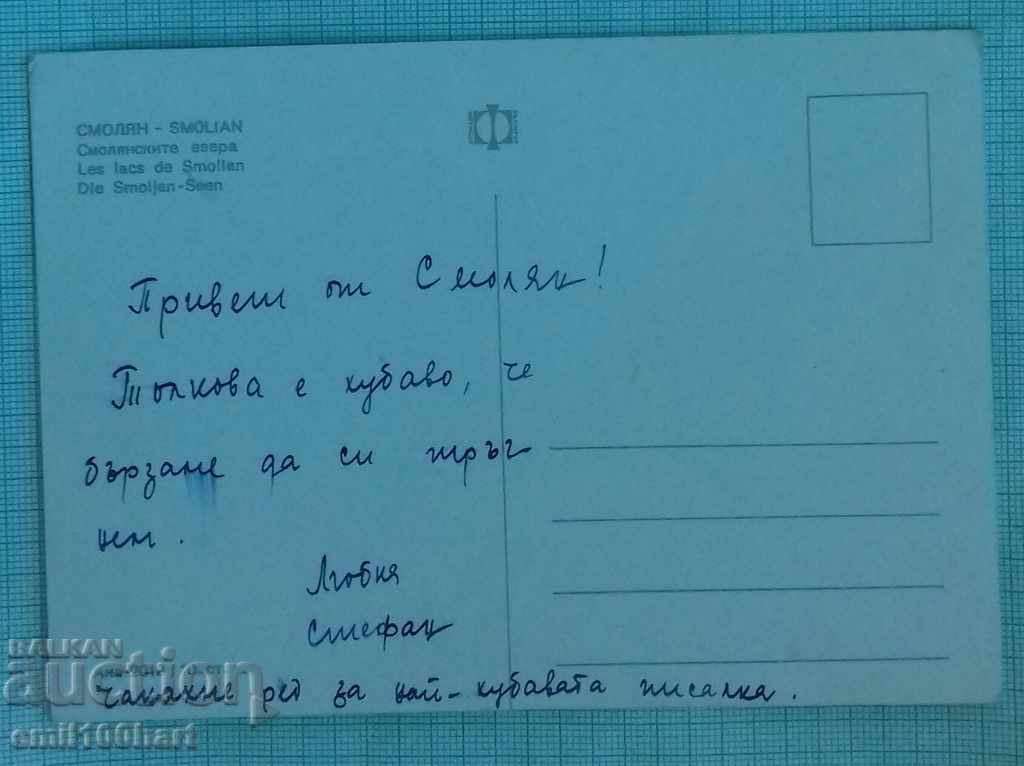 СМОЛЯН - SMOLIAN
Смолянските езера
Les lacs de Smolian
Die Smoljan-Seen
Привет от Смолян!
Толкова е хубаво, че
бързаме да си тръг
нем.
Любка
Стефан
Чакахме ред за най-хубавата писалка.
BALKAN
auction
emil100hart